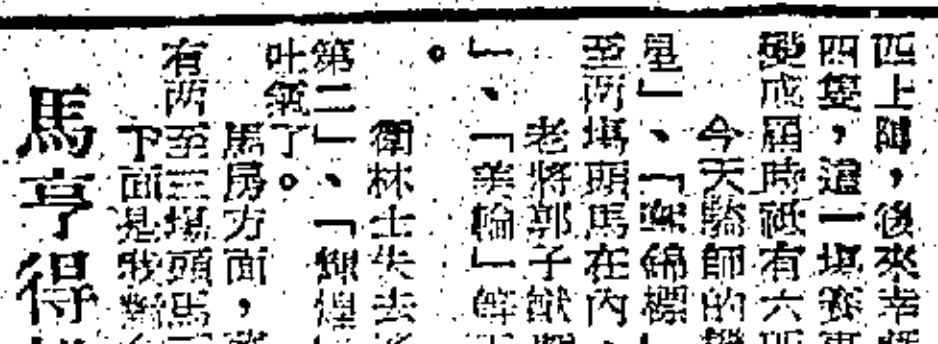 匹上陣，後來幸
四隻，這一場賽事
變成屆時祇有六匹
今天騎師的
星」、「錦標
至兩場頭馬在內、
老將郭子猷
」、「美輪」等
。
衛林士失去
第二」、「輝煌
吐氣了。
馬房方面，
有兩至三場頭馬
下面是我對
馬亨得